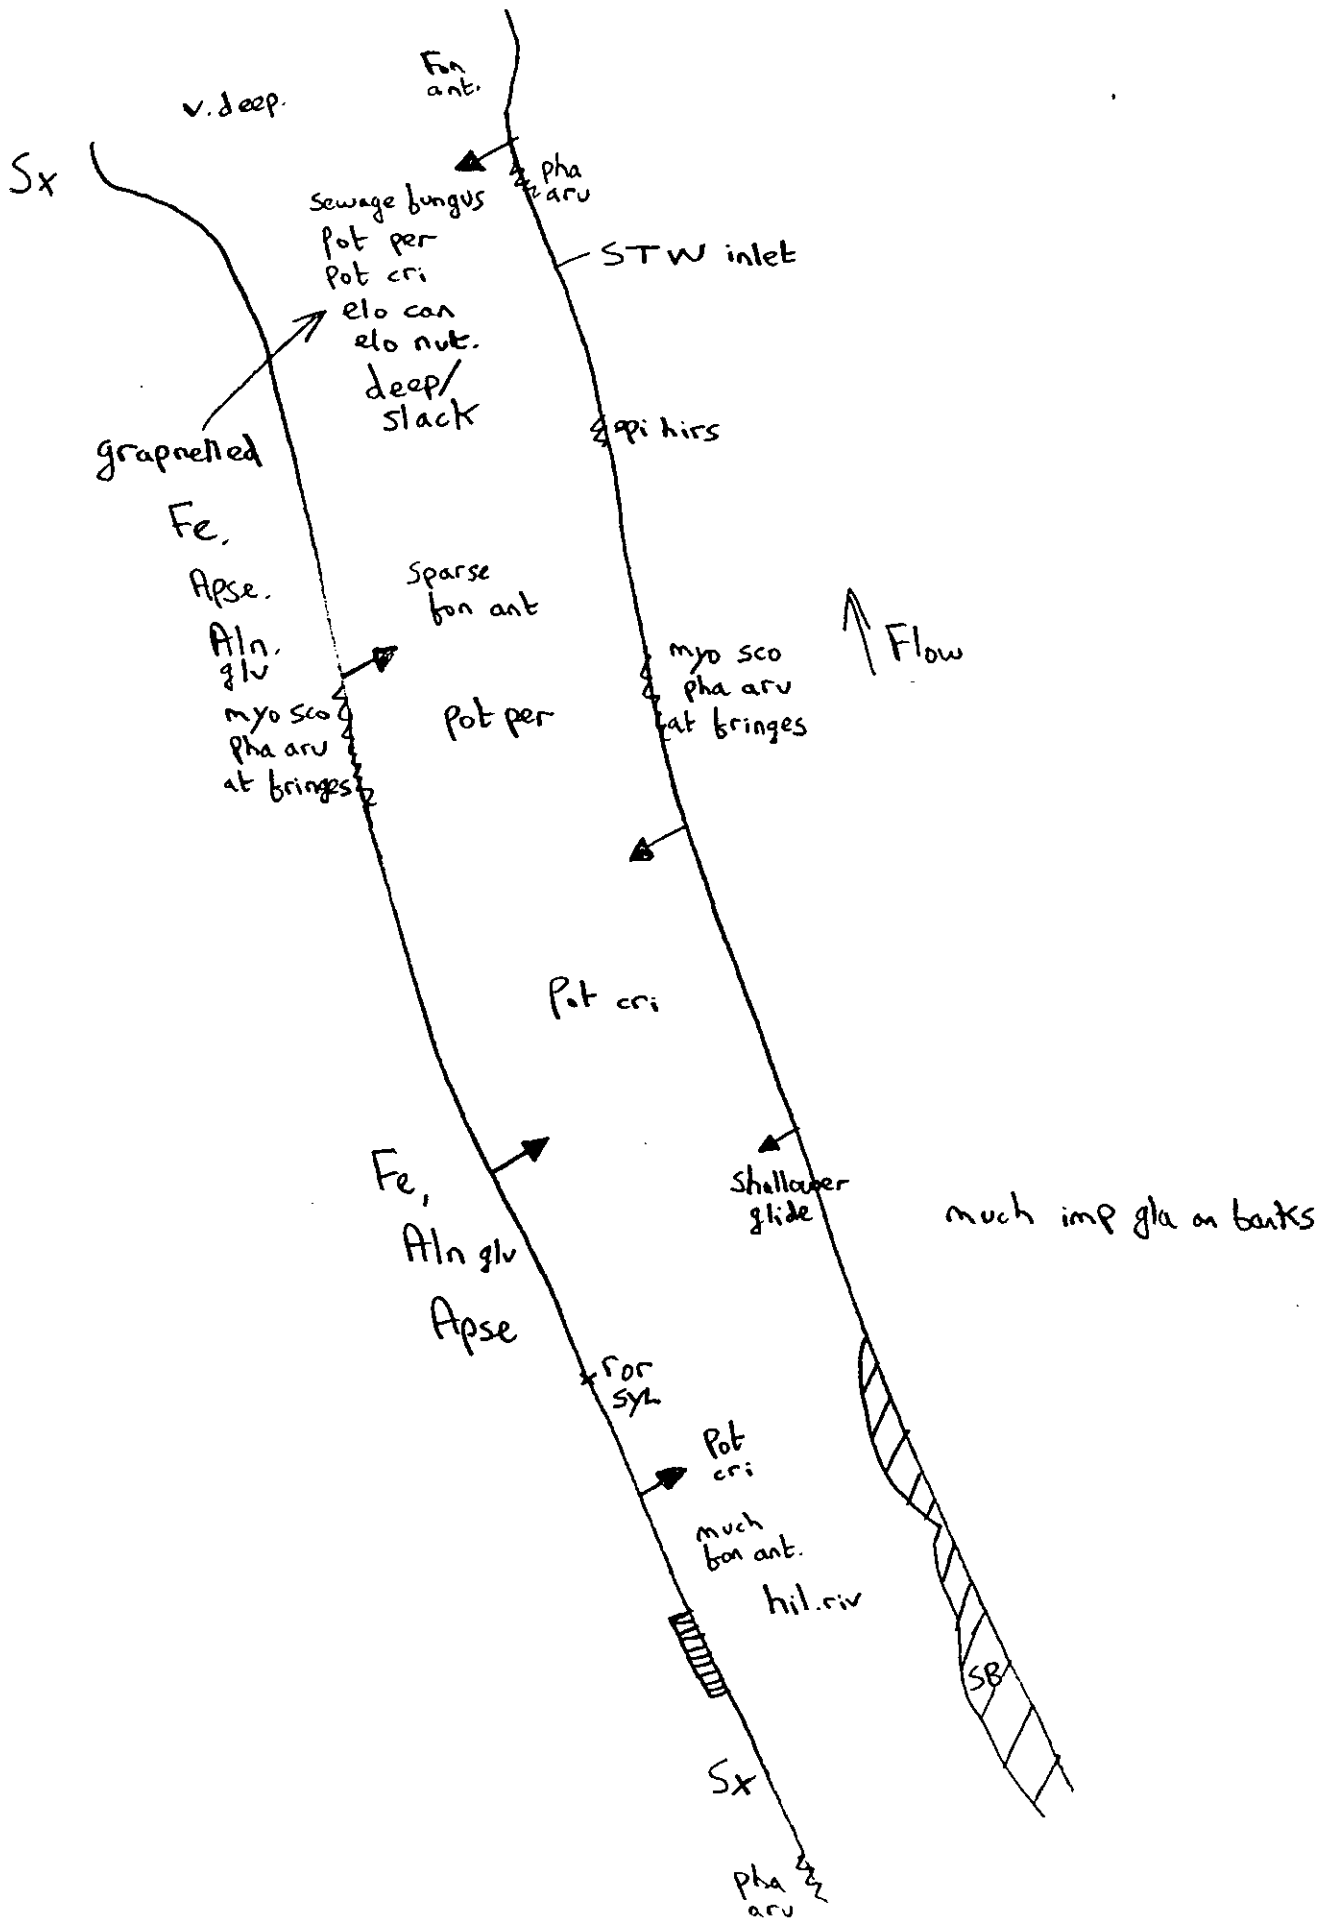 Fon
ant.
v. deep.
Sx
pha
aru
sewage fungus
Pot per
Pot cri
elo can
elo nut.
deep/
slack
STW inlet
grapnelled
epi hirs
Fe,
Apse.
Aln.
glu
myo sco
pha aru
at fringes
Sparse
fon ant
Pot per
myo sco
pha aru
at fringes
Flow
Pot cri
Fe,
Aln glu
Apse
Shallower
glide
much imp gla on banks
ror
syl
Pot
cri
much
fon ant.
hil.riv
SB
Sx
pha
aru